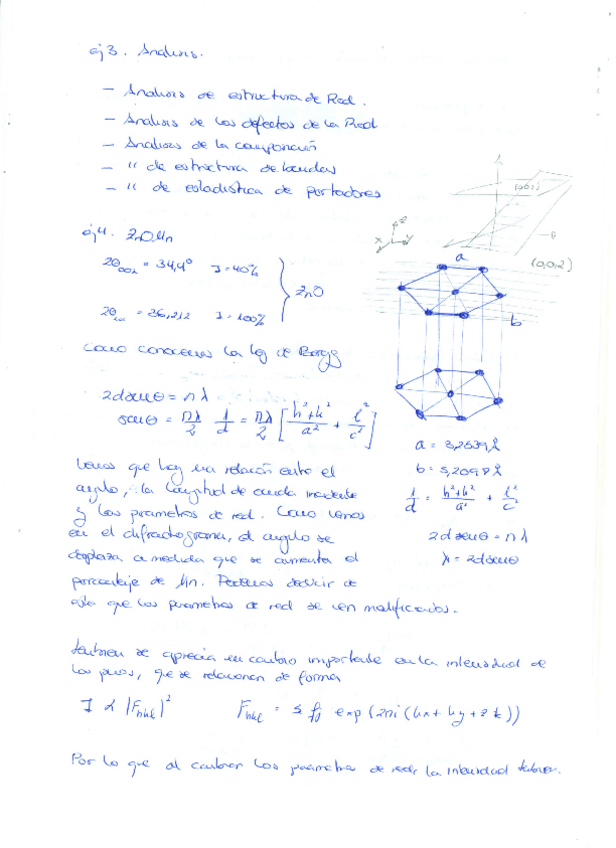 ej 3. Analisis.
- Analisis de estructura de Red.
- Analisis de los defectos de la Red
- Analisis de la composición
- " de estructura de bandas
- " de estadística de portadores
(002)
θ
(0,0,2)
z
x y
a
b
ej 4. ZnO:Mn
2θ₀₀₂ = 34,4° I=40%
ZnO
2θ₁₀₁ = 36,212 I=100%
Como conocemos la ley de Bragg
2d senθ = nλ
senθ = nλ/2 1/d = nλ/2 [(h²+k²)/a² + l²/c²]
a = 3,2539Å
b = 5,2098Å
1/d = (h²+k²)/a² + l²/c²
2d senθ = nλ
λ = 2d senθ
Vemos que hay una relación entre el
angulo, la longitud de onda incidente
y los parametros de red. Como vemos
en el difractograma, el angulo se
desplaza a medida que se aumenta el
porcentaje de Mn. Podemos deducir de
esto que los parametros de red se ven modificados.
tambien se aprecia un cambio importante en la intensidad de
los picos, que se relacionan de forma
I α |Fhkl|² Fhkl = Σ fj exp(2πi(hx+ky+zl))
Por lo que al cambiar los parametros de red, la intensidad tambien.